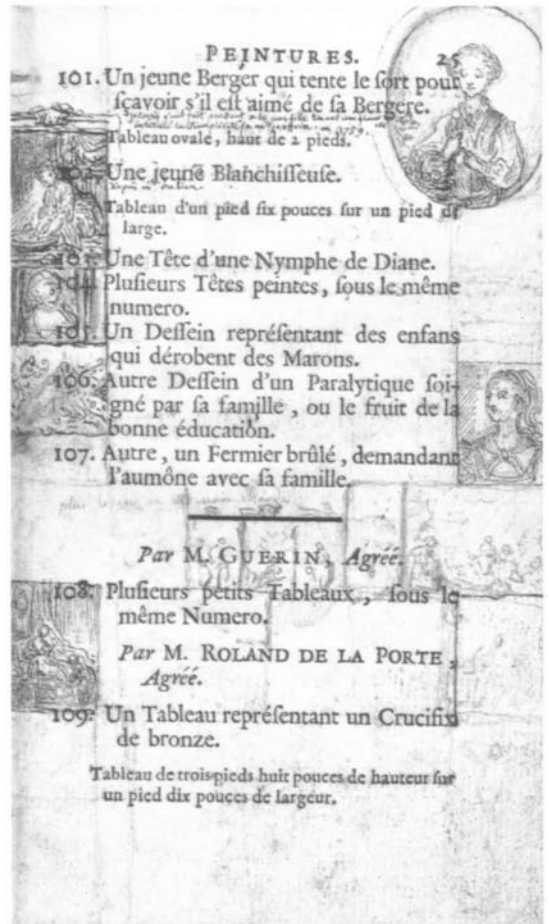 PEINTURES. 25
101. Un jeune Berger qui tente le ſort pour
ſçavoir s'il eſt aimé de ſa Bergere.
Tableau ovale, haut de 2 pieds.
102. Une jeune Blanchiſſeuſe.
Tableau d'un pied ſix pouces ſur un pied de
large.
103. Une Tête d'une Nymphe de Diane.
104. Pluſieurs Têtes peintes, ſous le même
numero.
105. Un Deſſein repréſentant des enfans
qui dérobent des Marons.
106. Autre Deſſein d'un Paralytique ſoi-
gné par ſa famille, ou le fruit de la
bonne éducation.
107. Autre, un Fermier brûlé, demandant
l'aumône avec ſa famille.
Par M. GUERIN, Agréé.
108. Pluſieurs petits Tableaux, ſous le
même Numero.
Par M. ROLAND DE LA PORTE,
Agréé.
109. Un Tableau repréſentant un Crucifix
de bronze.
Tableau de trois pieds huit pouces de hauteur ſur
un pied dix pouces de largeur.